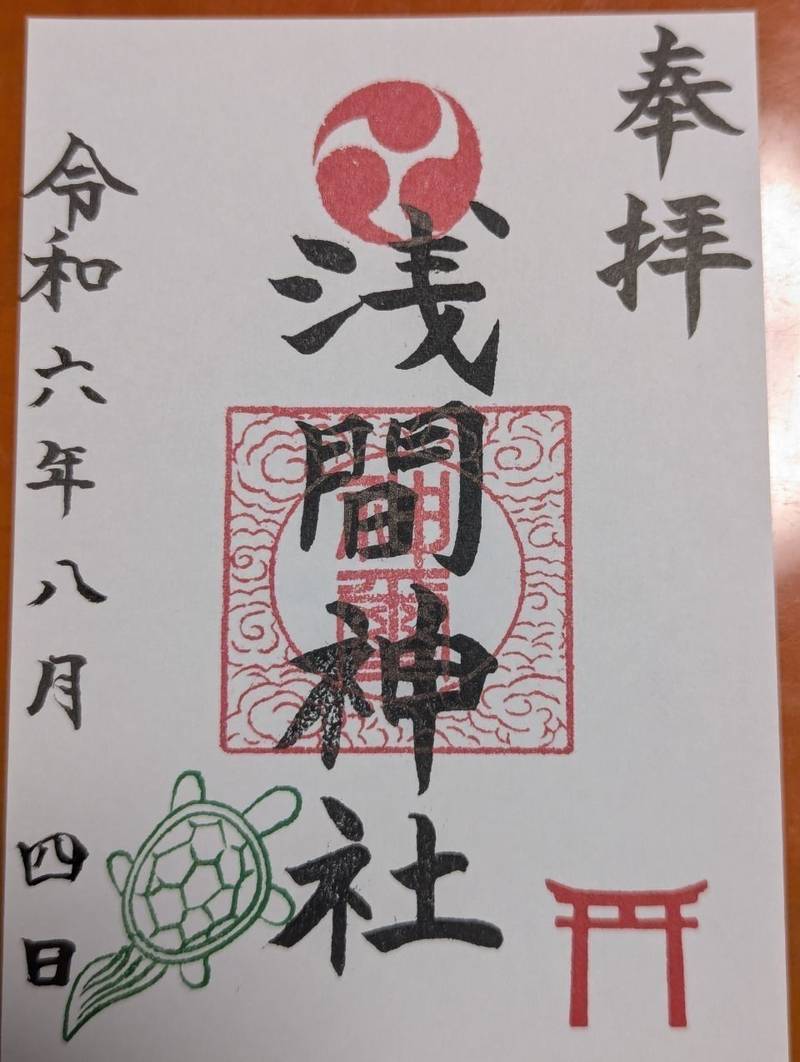 奉拝
浅間神社
神璽
令和六年八月四日